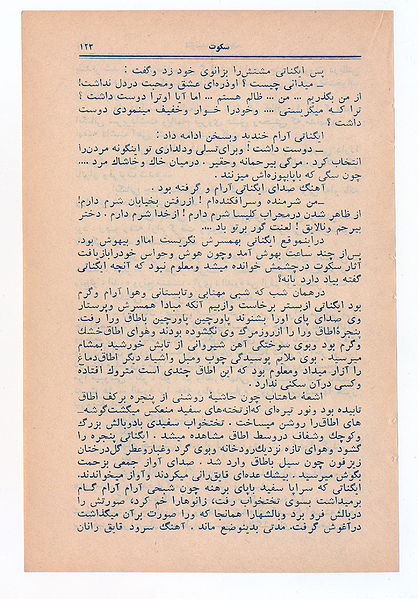 سکوت ۱۲۳
پس ایگناتی مشتش‌را بزانوی خود زد وگفت :
ــ میدانی چیست ؟ اوذره‌ای عشق ومحبت دردل نداشت!
از من بگذریم ... من ... ظالم هستم ... اما آیا اوترا دوست داشت ؟
ترا که میگریستی .... وخودرا خوار وخفیف مینمودی دوست
داشت ؟
ایگناتی آرام خندید وبسخن ادامه داد :
ــ دوست داشت ! وبرای‌تسلی ودلداری تو اینگونه مردن‌را
انتخاب کرد . مرگی بیرحمانه وحقیر . درمیان خاك وخاشاك مرد ....
چون سگی که باپابپوزه‌اش میزنند .
آهنگ صدای ایگناتی آرام و گرفته بود .
ــ من شرمنده وسرافکنده‌ام ! ازرفتن بخیابان شرم دارم!
از ظاهر شدن درمحراب کلیسا شرم دارم ! ازخدا شرم دارم . دختر
بیرحم ونالایق ! لعنت گور برتو باد ....
دراینموقع ایگناتی بهمسرش نگریست امااو بیهوش بود.
پس‌از چند ساعت بهوش آمد وچون هوش وحواس خودرابازیافت
آثار سکوت درچشمش خوانده میشد ومعلوم نبود که آنچه ایگناتی
گفته بیاد دارد یانه؟
درهمان شب که شبی مهتابی وتابستانی وهوا آرام وگرم
بود ایگناتی ازبستر برخاست وازبیم آنکه مبادا همسرش وپرستار
وی صدای پای اورا بشنوند پاورچین پاورچین باطاق ورا رفت.
پنجرهٔ‌اطاق ورا را ازروزمرگ وی نگشوده بودند وهوای اطاق‌خشك
وگرم بود وبوی سوختگی آهن شیروانی از تابش خورشید بمشام
میرسید . بوی ملایم پوسیدگی چوب ومبل واشیاء دیگر اطاق‌دماغ
را آزار میداد ومعلوم بود که این اطاق چندی است متروك افتاده
وکسی درآن سکنی ندارد .
اشعهٔ ماهتاب چون حاشیهٔ روشنی از پنجره برکف اطاق
تابیده بود ونور تیره‌ای که‌ازتخته‌های سفید منعکس میگشت‌گوشه‌ــ
های اطاق‌را روشن میساخت . تختخواب سفیدی بادوبالش بزرگ
وکوچك وشفاف دروسط اطاق مشاهده میشد . ایگناتی پنجره را
گشود وهوای تازه نزدیك‌رودخانه وبوی گرد وغباروعطر گل‌درختان
زیزفون چون سیل باطاق وارد شد . صدای آواز جمعی بزحمت
بگوش میرسید . بیشك عده‌ای قایق‌رانی میکردند وآواز میخواندند.
ایگناتی که سراپا سفید باپای برهنه چون شبحی آرام آرام گام
برمیداشت بسوی تختخواب رفت، زانوهارا خم کرد، صورتش را
دربالش فرو برد وبالشهارا همانجا که ورا صورت برآن میگذاشت
درآغوش گرفت. مدتی بدینوضع ماند . آهنگ سرود قایق رانان